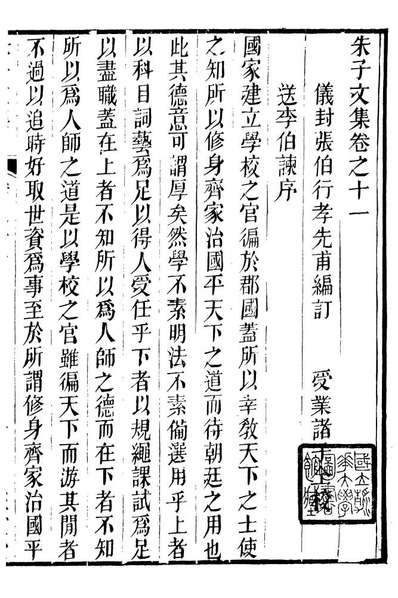 朱子文集卷之十一
儀封張伯行孝先甫編訂　受業諸
送李伯諫序
國家建立學校之官徧於郡國蓋所以幸教天下之士使
之知所以修身齊家治國平天下之道而待朝廷之用也
此其德意可謂厚矣然學不素明法不素備選用乎上者
以科目詞藝爲足以得人受任乎下者以規繩課試爲足
以盡職蓋在上者不知所以爲人師之德而在下者不知
所以爲人師之道是以學校之官雖徧天下而游其閒者
不過以追時好取世資爲事至於所謂修身齊家治國平